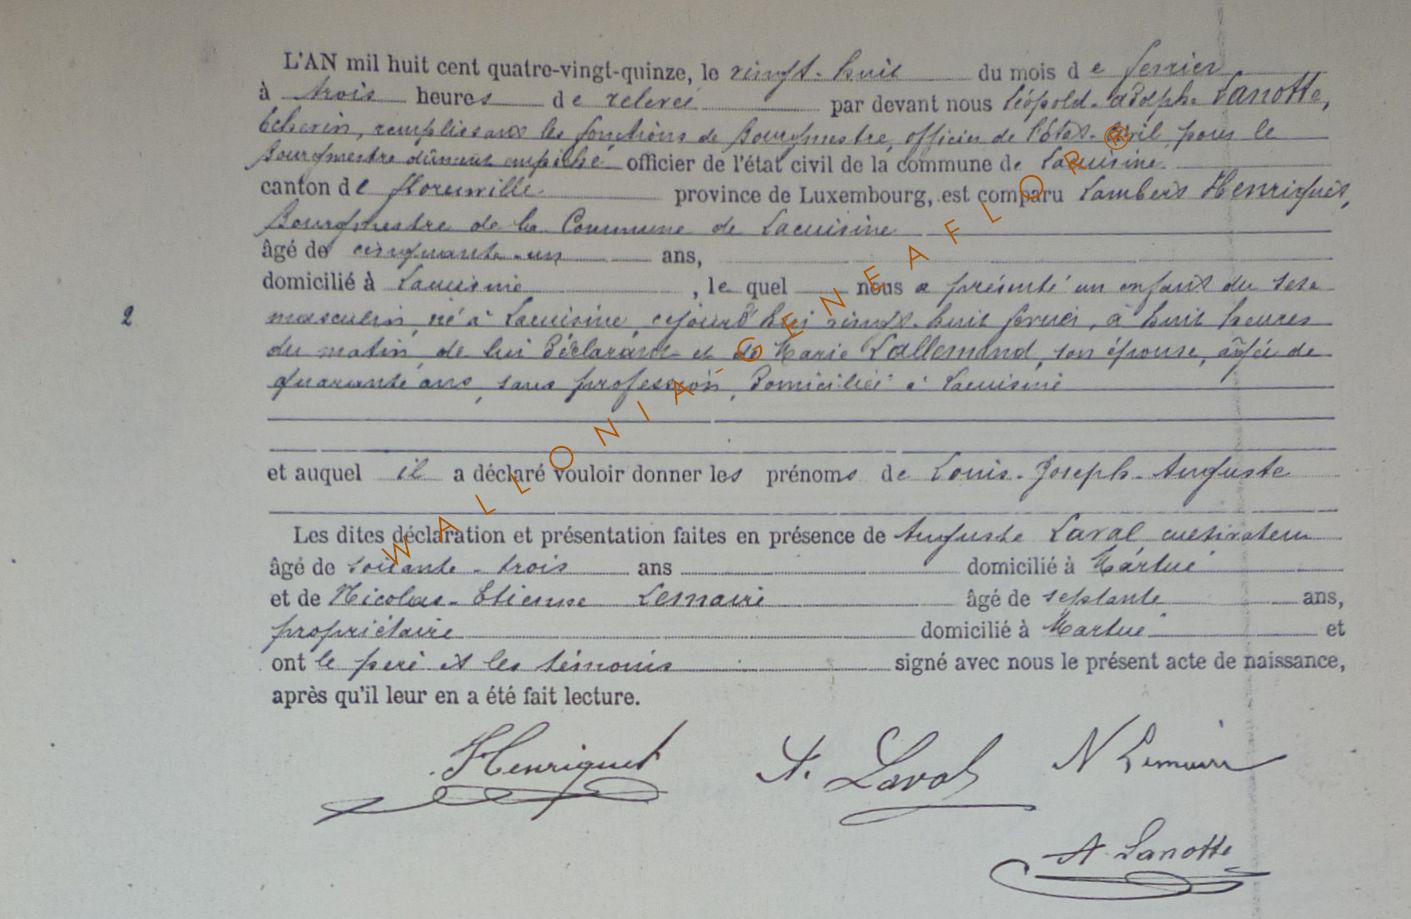 L'AN mil huit cent quatre-vingt-quinze, le vingt-huit du mois de février
à trois heures de relevée par devant nous Léopold-Adolphe Lanotte,
Echevin, remplissant les fonctions de Bourgmestre, officier de l'état-civil, pour le
Bourgmestre dûment empêché officier de l'état civil de la commune de Lacuisine
canton de florenville province de Luxembourg, est comparu Lambert Henriquet,
Bourgmestre de la Commune de Lacuisine
âgé de cinquante-un ans,
domicilié à Lacuisine, le quel nous a présenté un enfant du sexe
2
masculin, né à Lacuisine, cejourd'hui vingt-huit février, à huit heures
du matin, de lui Déclarant et de Marie Lallemand, son épouse, âgée de
quarante ans, sans profession, Domiciliée à Lacuisine
et auquel il a déclaré vouloir donner les prénoms de Louis-Joseph-Auguste
Les dites déclaration et présentation faites en présence de Auguste Laval cultivateur
âgé de soixante-trois ans domicilié à Martué
et de Nicolas-Etienne Lemaire âgé de septante ans,
propriétaire domicilié à Martué et
ont le père et les témoins signé avec nous le présent acte de naissance,
après qu'il leur en a été fait lecture.
Henriquet A. Laval N Lemaire
A. Lanotte
WALLONIA-GENEAFLOR®